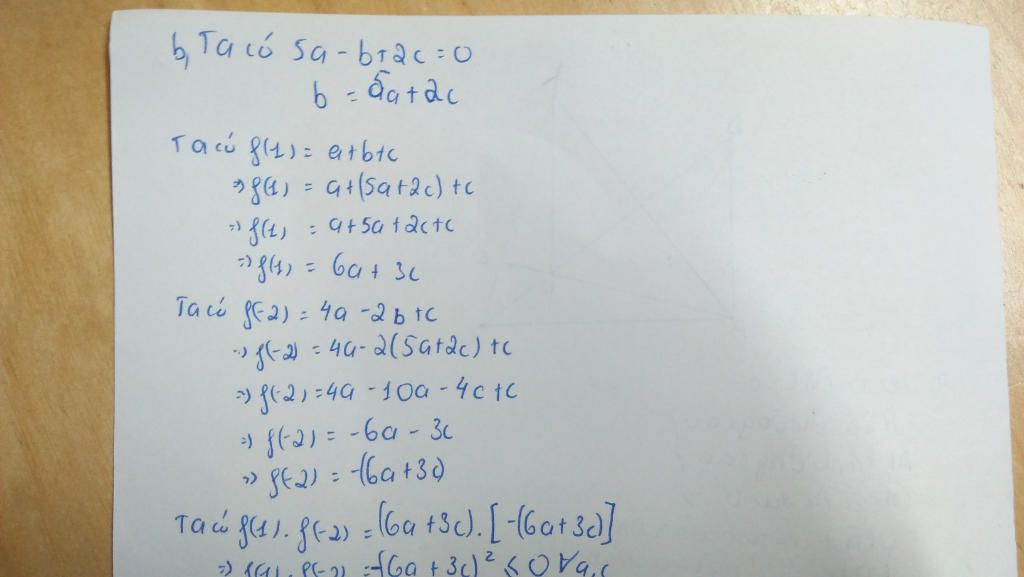 b, Ta có 5a - b + 2c = 0
b = 5a + 2c
Ta có f(1) = a + b + c
=> f(1) = a + (5a + 2c) + c
=> f(1) = a + 5a + 2c + c
=> f(1) = 6a + 3c
Ta có f(-2) = 4a - 2b + c
=> f(-2) = 4a - 2(5a + 2c) + c
=> f(-2) = 4a - 10a - 4c + c
=> f(-2) = -6a - 3c
=> f(-2) = -(6a + 3c)
Ta có f(1). f(-2) = (6a + 3c). [-(6a + 3c)]
=> f(1). f(-2) = -(6a + 3c)² ≤ 0 ∀ a, c